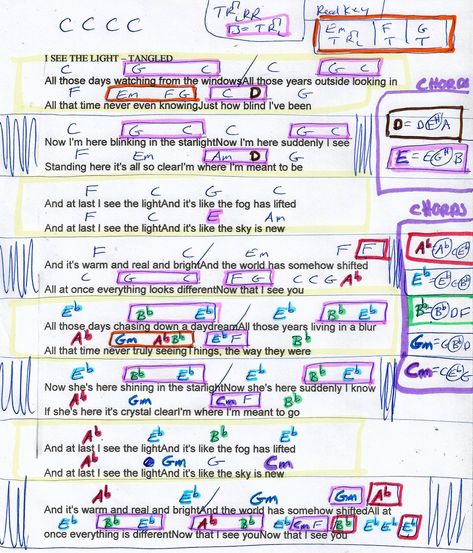 C C C C
TR↑RR
B = TR↑L
Read Key
Em F G
T R↑L T T
I SEE THE LIGHT – TANGLED
C G C C G C
All those days watching from the windowsAll those years outside looking in
F Em F G C D
All that time never even knowingJust how blind I've been
CHORDS
D = D E# A
E = E G# B
C G C C G C
Now I'm here blinking in the starlightNow I'm here suddenly I see
F Em Am D
Standing here it's all so clearI'm where I'm meant to be
F C F C
And at last I see the lightAnd it's like the fog has lifted
F C E Am
And at last I see the lightAnd it's like the sky is new
CHORDS
F C Em F F
And it's warm and real and brightAnd the world has somehow shifted
C G C F G C C G Ab
All at once everything looks differentNow that I see you
Eb Bb Eb Eb Bb Eb
All those days chasing down a daydreamAll those years living in a blur
Ab Gm Ab Bb Eb F Bb
All that time never truly seeingThings, the way they were
Eb Bb Eb Eb Bb Eb
Now she's here shining in the starlightNow she's here suddenly I know
Ab Gm Cm F Bb
If she's here it's crystal clearI'm where I'm meant to go
Ab Eb Bb Eb
And at last I see the lightAnd it's like the fog has lifted
Ab Gm G Cm
And at last I see the lightAnd it's like the sky is new
Ab Eb Gm Gm Ab
And it's warm and real and brightAnd the world has somehow shiftedAll at
Eb Bb Eb Ab Bb Eb Cm F Bb Eb Eb Eb
once everything is differentNow that I see youNow that I see you